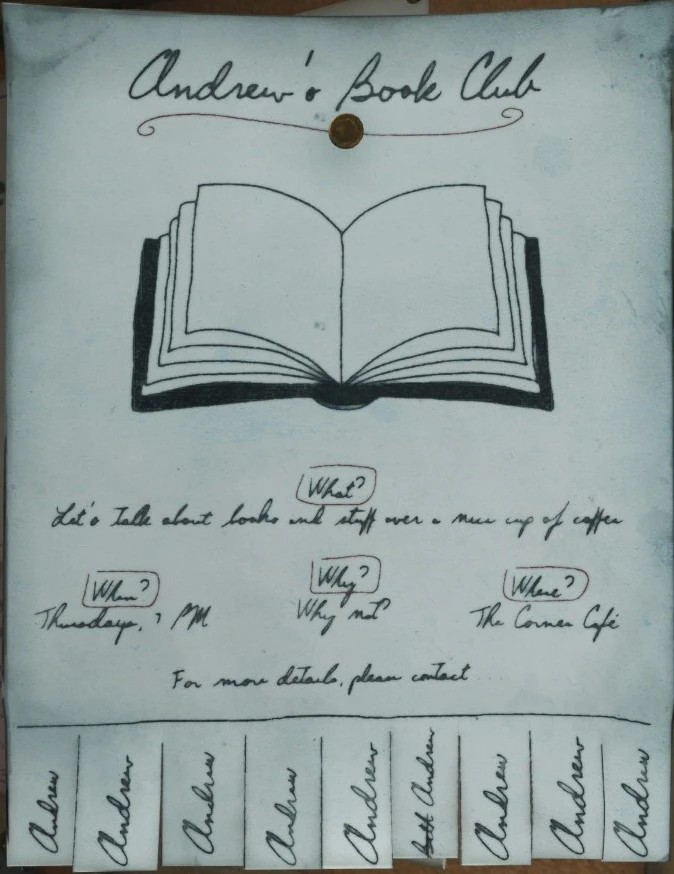 Andrew's Book Club
What?
Let's talk about books and stuff over a nice cup of coffee
When?
Thursdays, 7 PM
Why?
Why not?
Where?
The Corner Café
For more details, please contact
Andrew
Andrew
Andrew
Andrew
Andrew
Andrew
Andrew
Andrew
Andrew